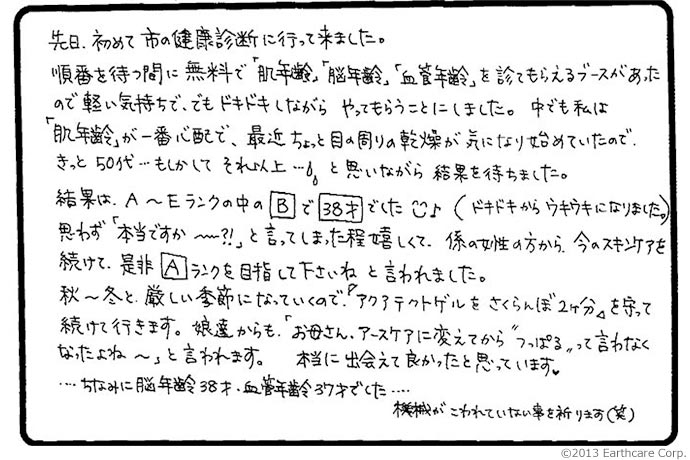 先日、初めて市の健康診断に行って来ました。
順番を待つ間に無料で「肌年齢」「脳年齢」「血管年齢」を診てもらえるブースがあった
ので軽い気持ちで、でもドキドキしながら やってもらうことにしました。中でも私は
「肌年齢」が一番心配で、最近ちょっと目の周りの乾燥が気になり始めていたので、
きっと50代…もしかして それ以上…。。と思いながら 結果を待ちました。
結果は、A〜Eランクの中の B で 38才 でした☺♪（ドキドキからウキウキになりました。）
思わず「本当ですか〜〜?!」と言ってしまった程嬉しくて、係の女性の方から、今のスキンケアを
続けて、是非 A ランクを目指して下さいね と言われました。
秋〜冬と、厳しい季節になっていくので、「アクアテクトゲルをさくらんぼ2ヶ分」を守って
続けて行きます。娘達からも、「お母さん、アースケアに変えてから“つっぱる”って言わなく
なったよね〜」と言われます。 本当に出会えて良かったと思っています♥
…ちなみに脳年齢38才・血管年齢37才でした…
機械がこわれていない事を祈ります（笑）
©2013 Earthcare Corp.